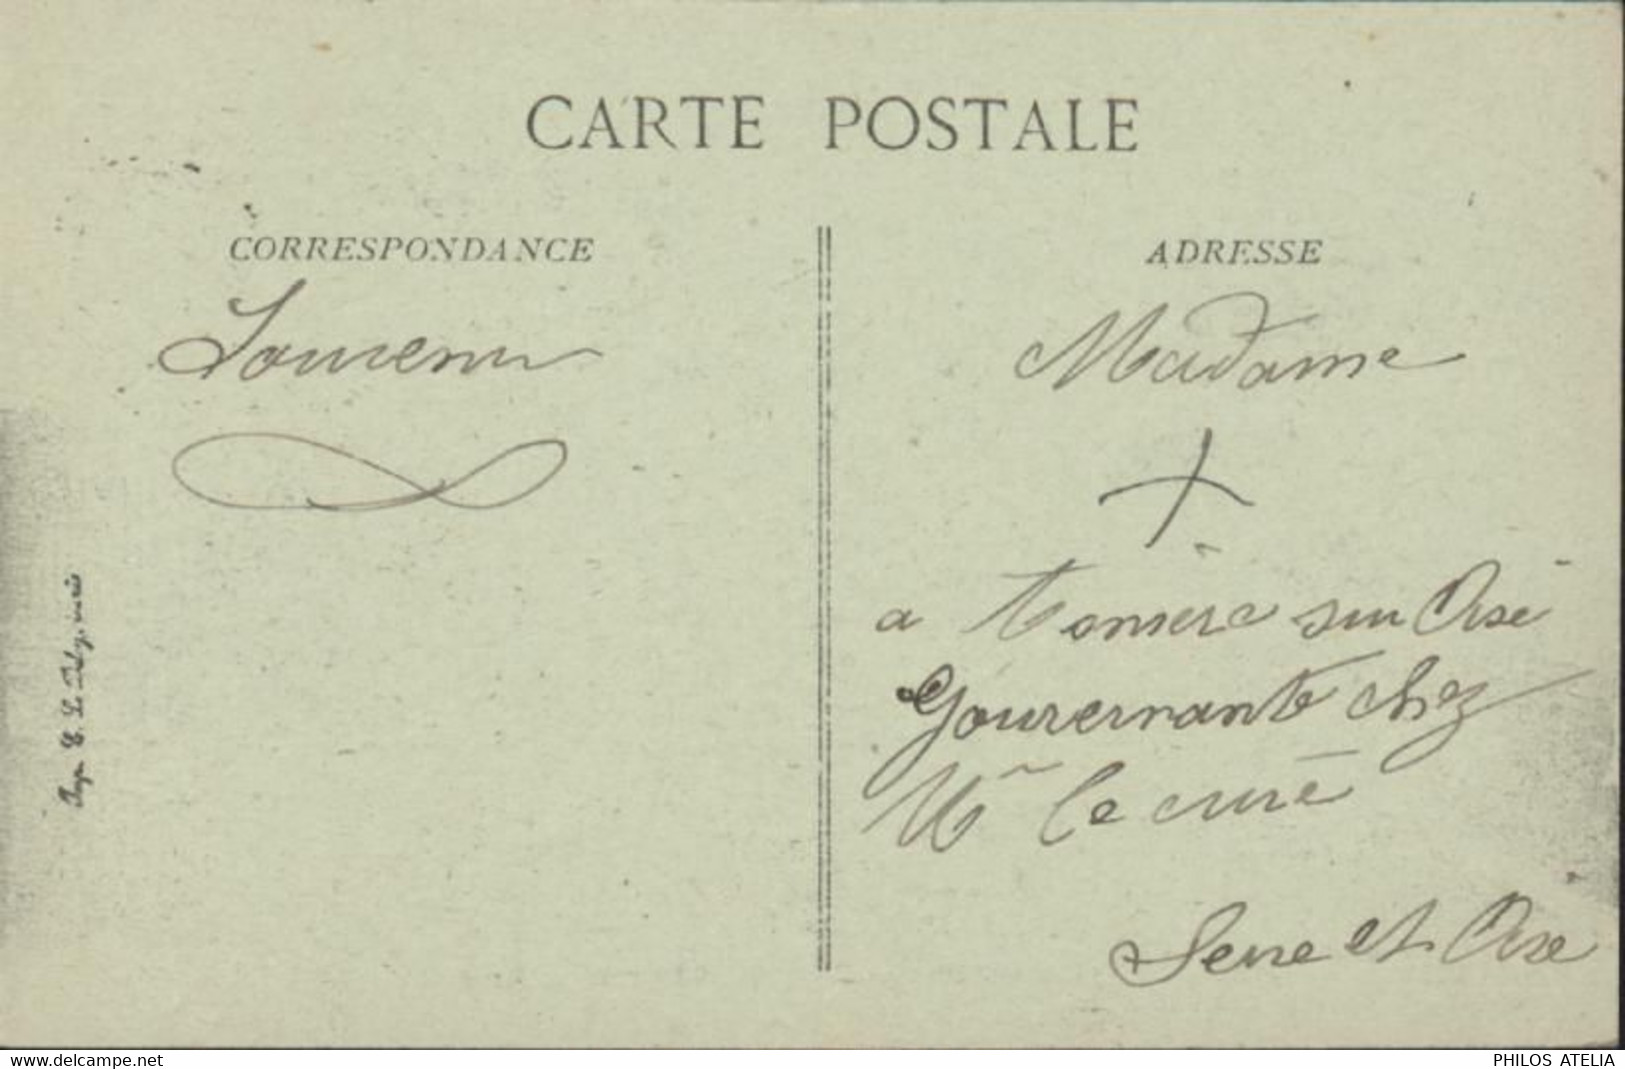 CARTE POSTALE
CORRESPONDANCE
Souvenir
Imp. E. L. D.
ADRESSE
Madame
a sur Oise
Gouvernante chez
Mr le curé
Seine et Oise
www.delcampe.net
PHILOS ATELIA